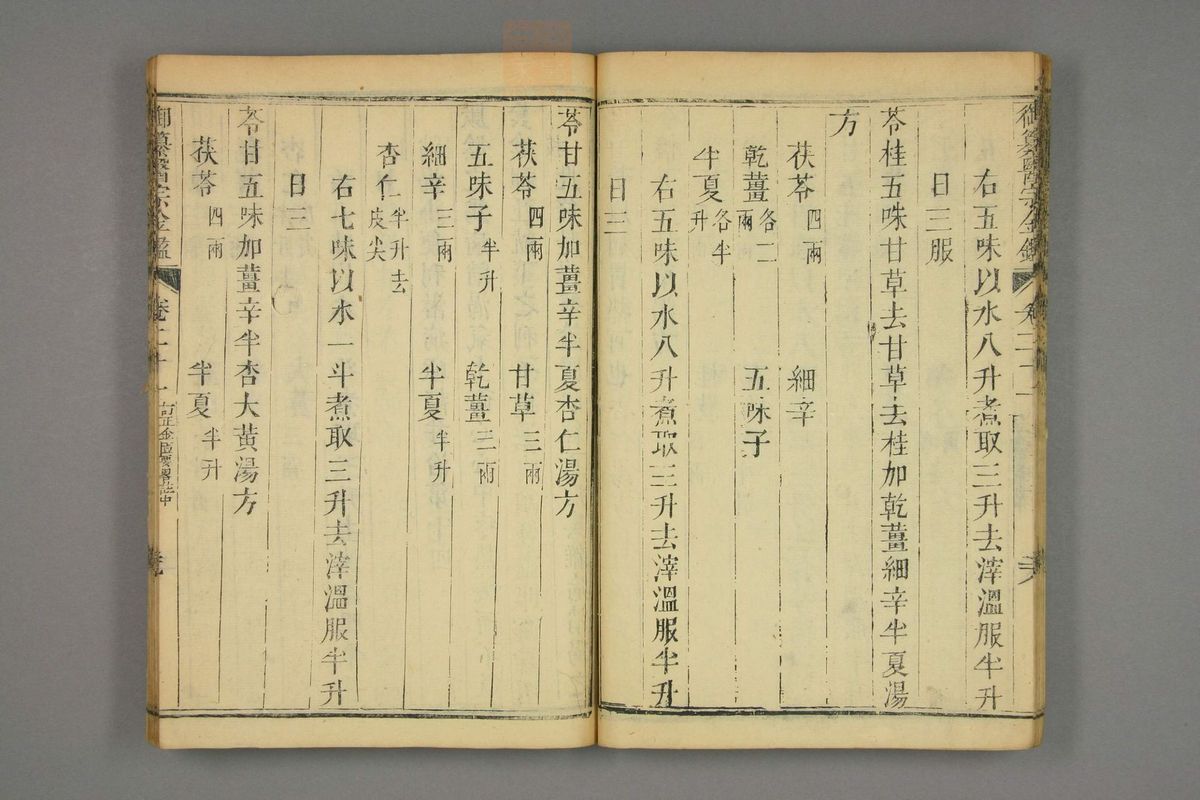 御纂醫宗金鑑
右五味以水八升煮取三升去滓溫服半升
日三服
苓桂五味甘草去甘草去桂加乾薑細辛半夏湯
方
茯苓四兩　細辛
乾薑各二兩　五味子
半夏各半升
右五味以水八升煮取三升去滓溫服半升
日三
苓甘五味加薑辛半夏杏仁湯方
茯苓四兩　甘草三兩
五味子半升　乾薑三兩
細辛三兩　半夏半升
杏仁半升去皮尖
右七味以水一斗煮取三升去滓溫服半升
日三
苓甘五味加薑辛半杏大黃湯方
茯苓四兩　半夏半升
御纂醫宗金鑑　卷二十一